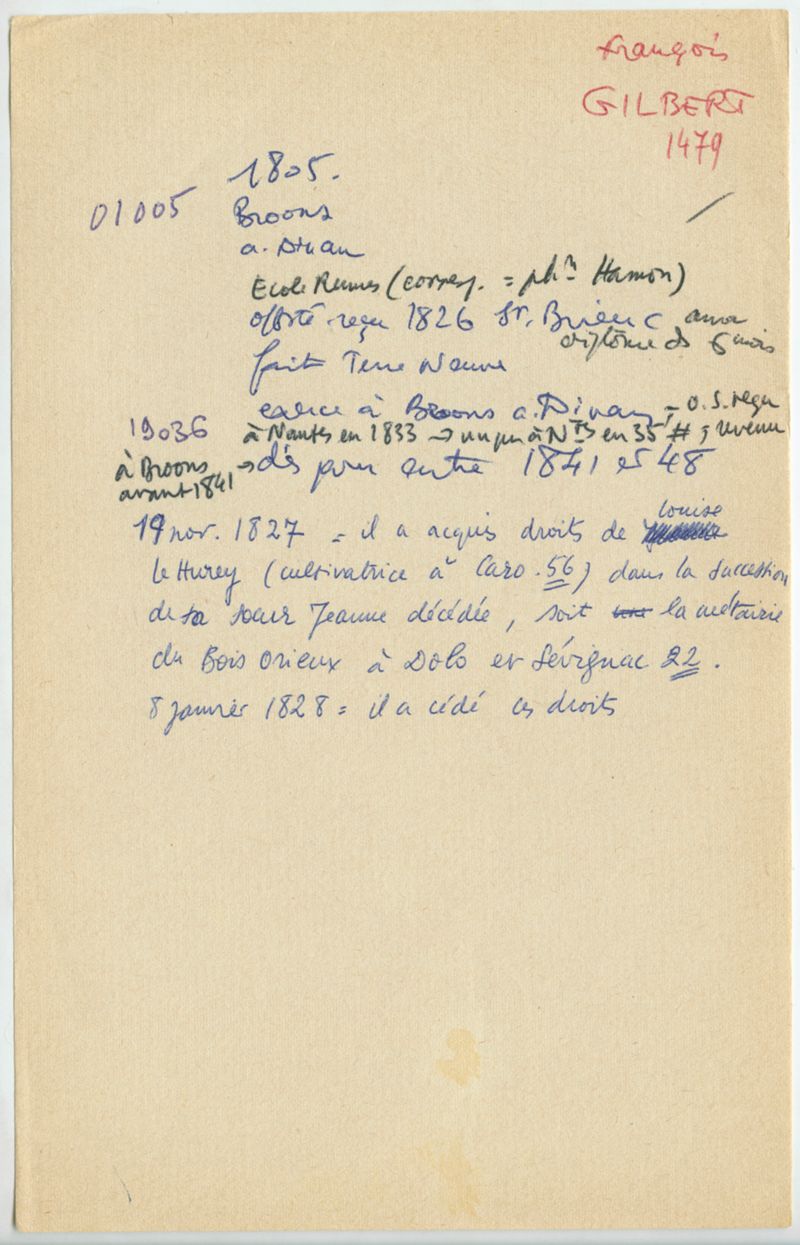 François
GILBERT
1479
1805.
01005 Broons
a. Dinan
Ecole Rennes (corresp. = phⁿ Hamon)
offsté reçu 1826 St. Brieuc aura
diplôme ds 6 mois
fait Terre Neuve
exerce à Broons a. Dinan, = O.S. reçu
19036 à Nantes en 1833 → un peu à Nᵗᵉˢ en 35 # ; revenu
à Broons
avant 1841 → dcs pour entre 1841 et 48
19 nov. 1827 = il a acquis droits de Louise
Le Hurey (cultivatrice à Caro. 56) dans la succession
de sa soeur Jeanne décédée, soit la métairie
du Bois Orieux à Dolo et Sévignac 22.
8 janvier 1828 = il a cédé ces droits